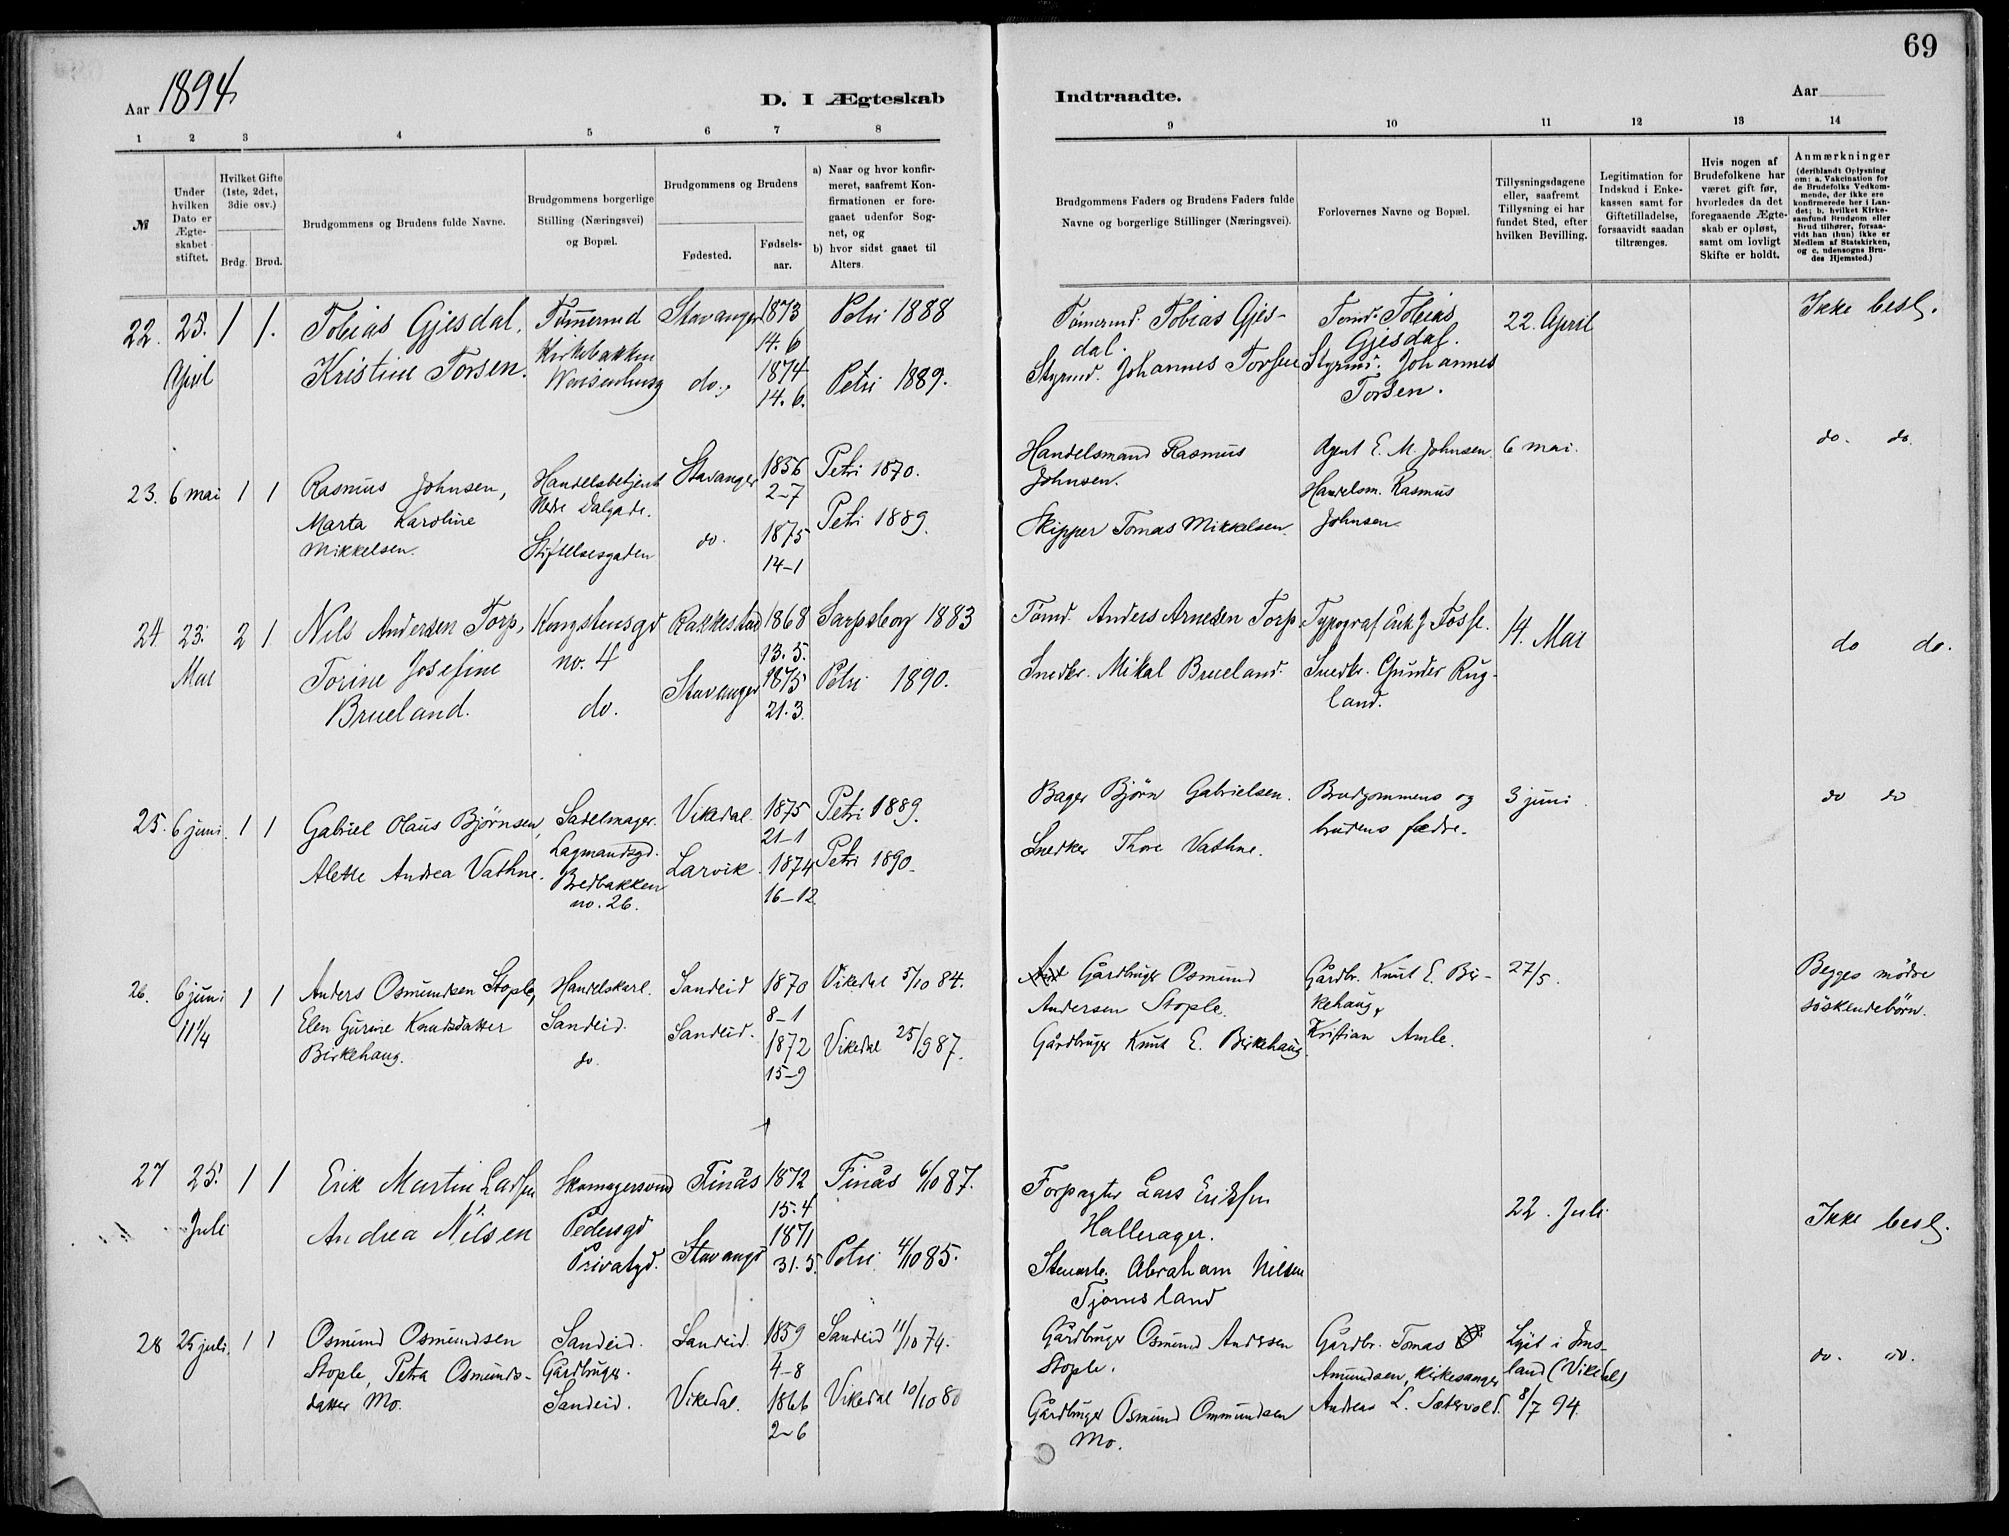 69
Aar 1894
D. I Ægteskab
Indtraadte.
Aar
1 2 3 4 5 6 7 8
9 10 11 12 13 14
№
Under hvilken Dato er Ægte-skabet stiftet.
Hvilket Gifte (1ste, 2det, 3die osv.)
Brdg. Brud.
Brudgommens og Brudens fulde Navne.
Brudgommens borgerlige Stilling (Næringsvei) og Bopæl.
Brudgommens og Brudens
Fødested.
Fødsels-aar.
a) Naar og hvor konfir-meret, saafremt Kon-firmationen er fore-gaaet udenfor Sog-net, og
b) hvor sidst gaaet til Alters.
Brudgommens Faders og Brudens Faders fulde Navne og borgerlige Stillinger (Næringsvei).
Forlovernes Navne og Bopæl.
Tillysningsdagene eller, saafremt Tillysning ei har fundet Sted, efter hvilken Bevilling.
Legitimation for Indskud i Enke-kassen samt for Giftetilladelse, forsaavidt saadan tiltrænges.
Hvis nogen af Brudefolkene har været gift før, hvorledes da det foregaaende Ægte-skab er opløst, samt om lovligt Skifte er holdt.
Anmærkninger (deriblandt Oplysning om: a. Vakcination for de Brudefolks Vedkom-mende, der ikke ere konfirmerede her i Lan-det; b. hvilket Kirke-samfund Brudgom eller Brud tilhører, forsaa-vidt han (hun) ikke er Medlem af Statskirken, og c. udensogns Bru-des Hjemsted.)
22. 25. April 1 1.
Tobias Gjesdal,
Kristine Torsen.
Tømermd
Kirkebakken
Stavanger
do.,
1873
14.6
1874
14.6.
Petri 1888
Petri 1889.
Tømermd. Tobias Gjes-
dal.
Styrmd. Johannes Torsen
Tømd. Tobias
Gjesdal.
Styrmd. Johannes
Torsen.
22. April
Ikke besl.
23. 6 mai 1 1
Rasmus Johnsen,
Marta Karoline
Mikkelsen.
Handelsbetjent
Nedre Dalgade.
Stiftelsesgaden
Stavanger
do.
1856
2-7
1875
14-1
Petri 1870.
Petri 1889.
Handelsmand Rasmus
Johnsen.
Skipper Tomas Mikkelsen.
Agent E. M. Johnsen
Handelsm. Rasmus
Johnsen.
6 mai.
do. do.
24. 23. Mai 2 1.
Nils Andersen Torp,
Torine Josefine
Brueland.
Kongstensgd
no. 4
do.
Rakkestad
Stavanger
1868
13.5.
1875
21.3.
Sarpsborg 1883
Petri 1890.
Tømd. Anders Arnesen Torp.
Snedkr. Mikal Brueland.
Typograf Erik J Fosse.
Snedkr. Gunder Rug-
land.
14. Mai
do do.
25. 6 juni. 1 1
Gabriel Olaus Bjørnsen,
Alette Andrea Vathne.
Sadelmager.
Lagmandsgd.
Bredbakken
no. 26.
Vikedal
Larvik.
1875
21-1
1874
16-12
Petri 1889.
Petri 1890.
Bager Bjørn Gabrielsen.
Snedker Thore Vathne.
Brudgommens og
brudens fædre.
3 juni.
do do
26. 6 juni 11¼ 1 1
Anders Osmundsen Stople,
Elen Gurine Knudsdatter
Birkehaug.
Handelskarl.
Sandeid.
do.
Sandeid
Sandeid.
1870
8-1
1872
15-9
Vikedal 5/10 84.
Vikedal 25/9 87.
Gårdbruger Osmund
Andersen Stople.
Gårdbruger Knut E. Birkehaug.
Gårdbr. Knut E. Bir-
kehaug,
Kristian Amle.
27/5.
Begges mødre
søskendebørn.
27 25. Juli 1 1
Erik Martin Larsen
Andrea Nilsen
Skomagersvend
Pedersgd
Privatgd.
Finås
Stavanger
1872
15.4
1871
31.5.
Finås 6/10 87.
Petri 4/10 85.
Forpagter Lars Eriksen
Hallerager.
Stenarb. Abraham Nilsen
Tjomsland
22. Juli
Ikke besl.
28 25 juli. 1 1
Osmund Osmundsen
Stople, Petra Osmunds-
datter Mo.
Sandeid.
Gårdbruger.
Sandeid.
Sandeid.
Vikedal.
1859
4-8
1866
2-6
Sandeid 11/10 74.
Vikedal 10/10 80
Gårdbruger Osmund Andersen
Stople.
Gårdbruger Osmund Ommundsen
Mo.
Gårdbr. Tomas
Amundsen, Kirkesanger
Andreas L. Sætervold.
Lyst i Ims-
land (Vikedal)
8/7 94.
do. do.